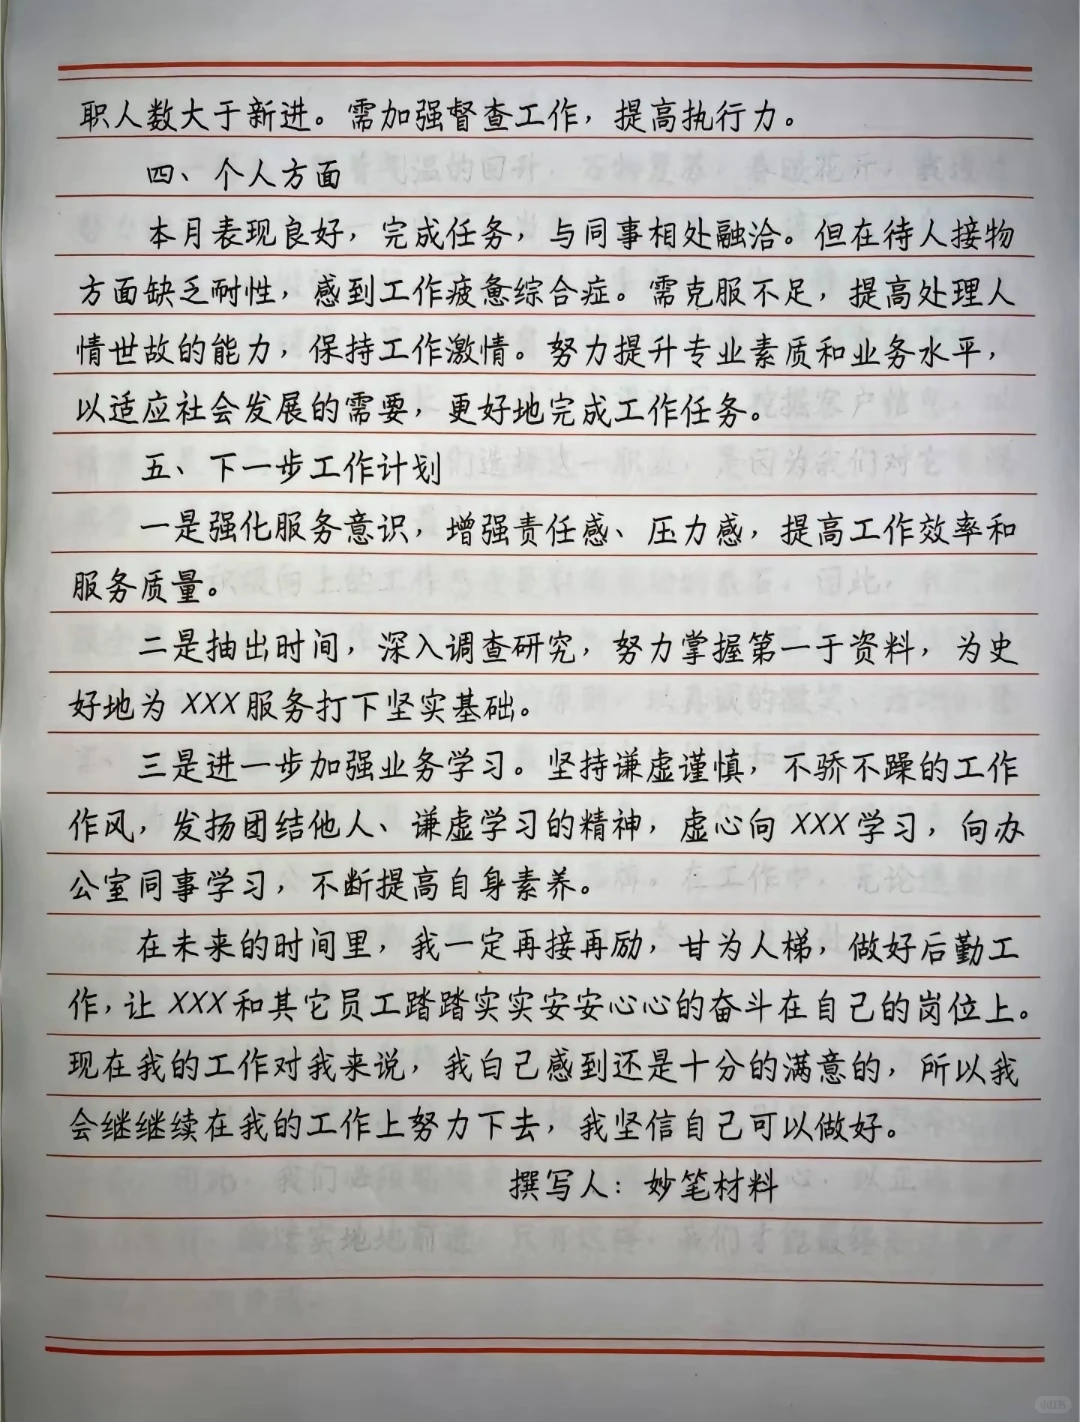 职人数大于新进。需加强督查工作，提高执行力。
四、个人方面
本月表现良好，完成任务，与同事相处融洽。但在待人接物
方面缺乏耐性，感到工作疲惫综合症。需克服不足，提高处理人
情世故的能力，保持工作激情。努力提升专业素质和业务水平，
以适应社会发展的需要，更好地完成工作任务。
五、下一步工作计划
一是强化服务意识，增强责任感、压力感，提高工作效率和
服务质量。
二是抽出时间，深入调查研究，努力掌握第一于资料，为史
好地为 XXX 服务打下坚实基础。
三是进一步加强业务学习。坚持谦虚谨慎，不骄不躁的工作
作风，发扬团结他人、谦虚学习的精神，虚心向 XXX 学习，向办
公室同事学习，不断提高自身素养。
在未来的时间里，我一定再接再励，甘为人梯，做好后勤工
作，让 XXX 和其它员工踏踏实实安安心心的奋斗在自己的岗位上。
现在我的工作对我来说，我自己感到还是十分的满意的，所以我
会继继续在我的工作上努力下去，我坚信自己可以做好。
撰写人：妙笔材料